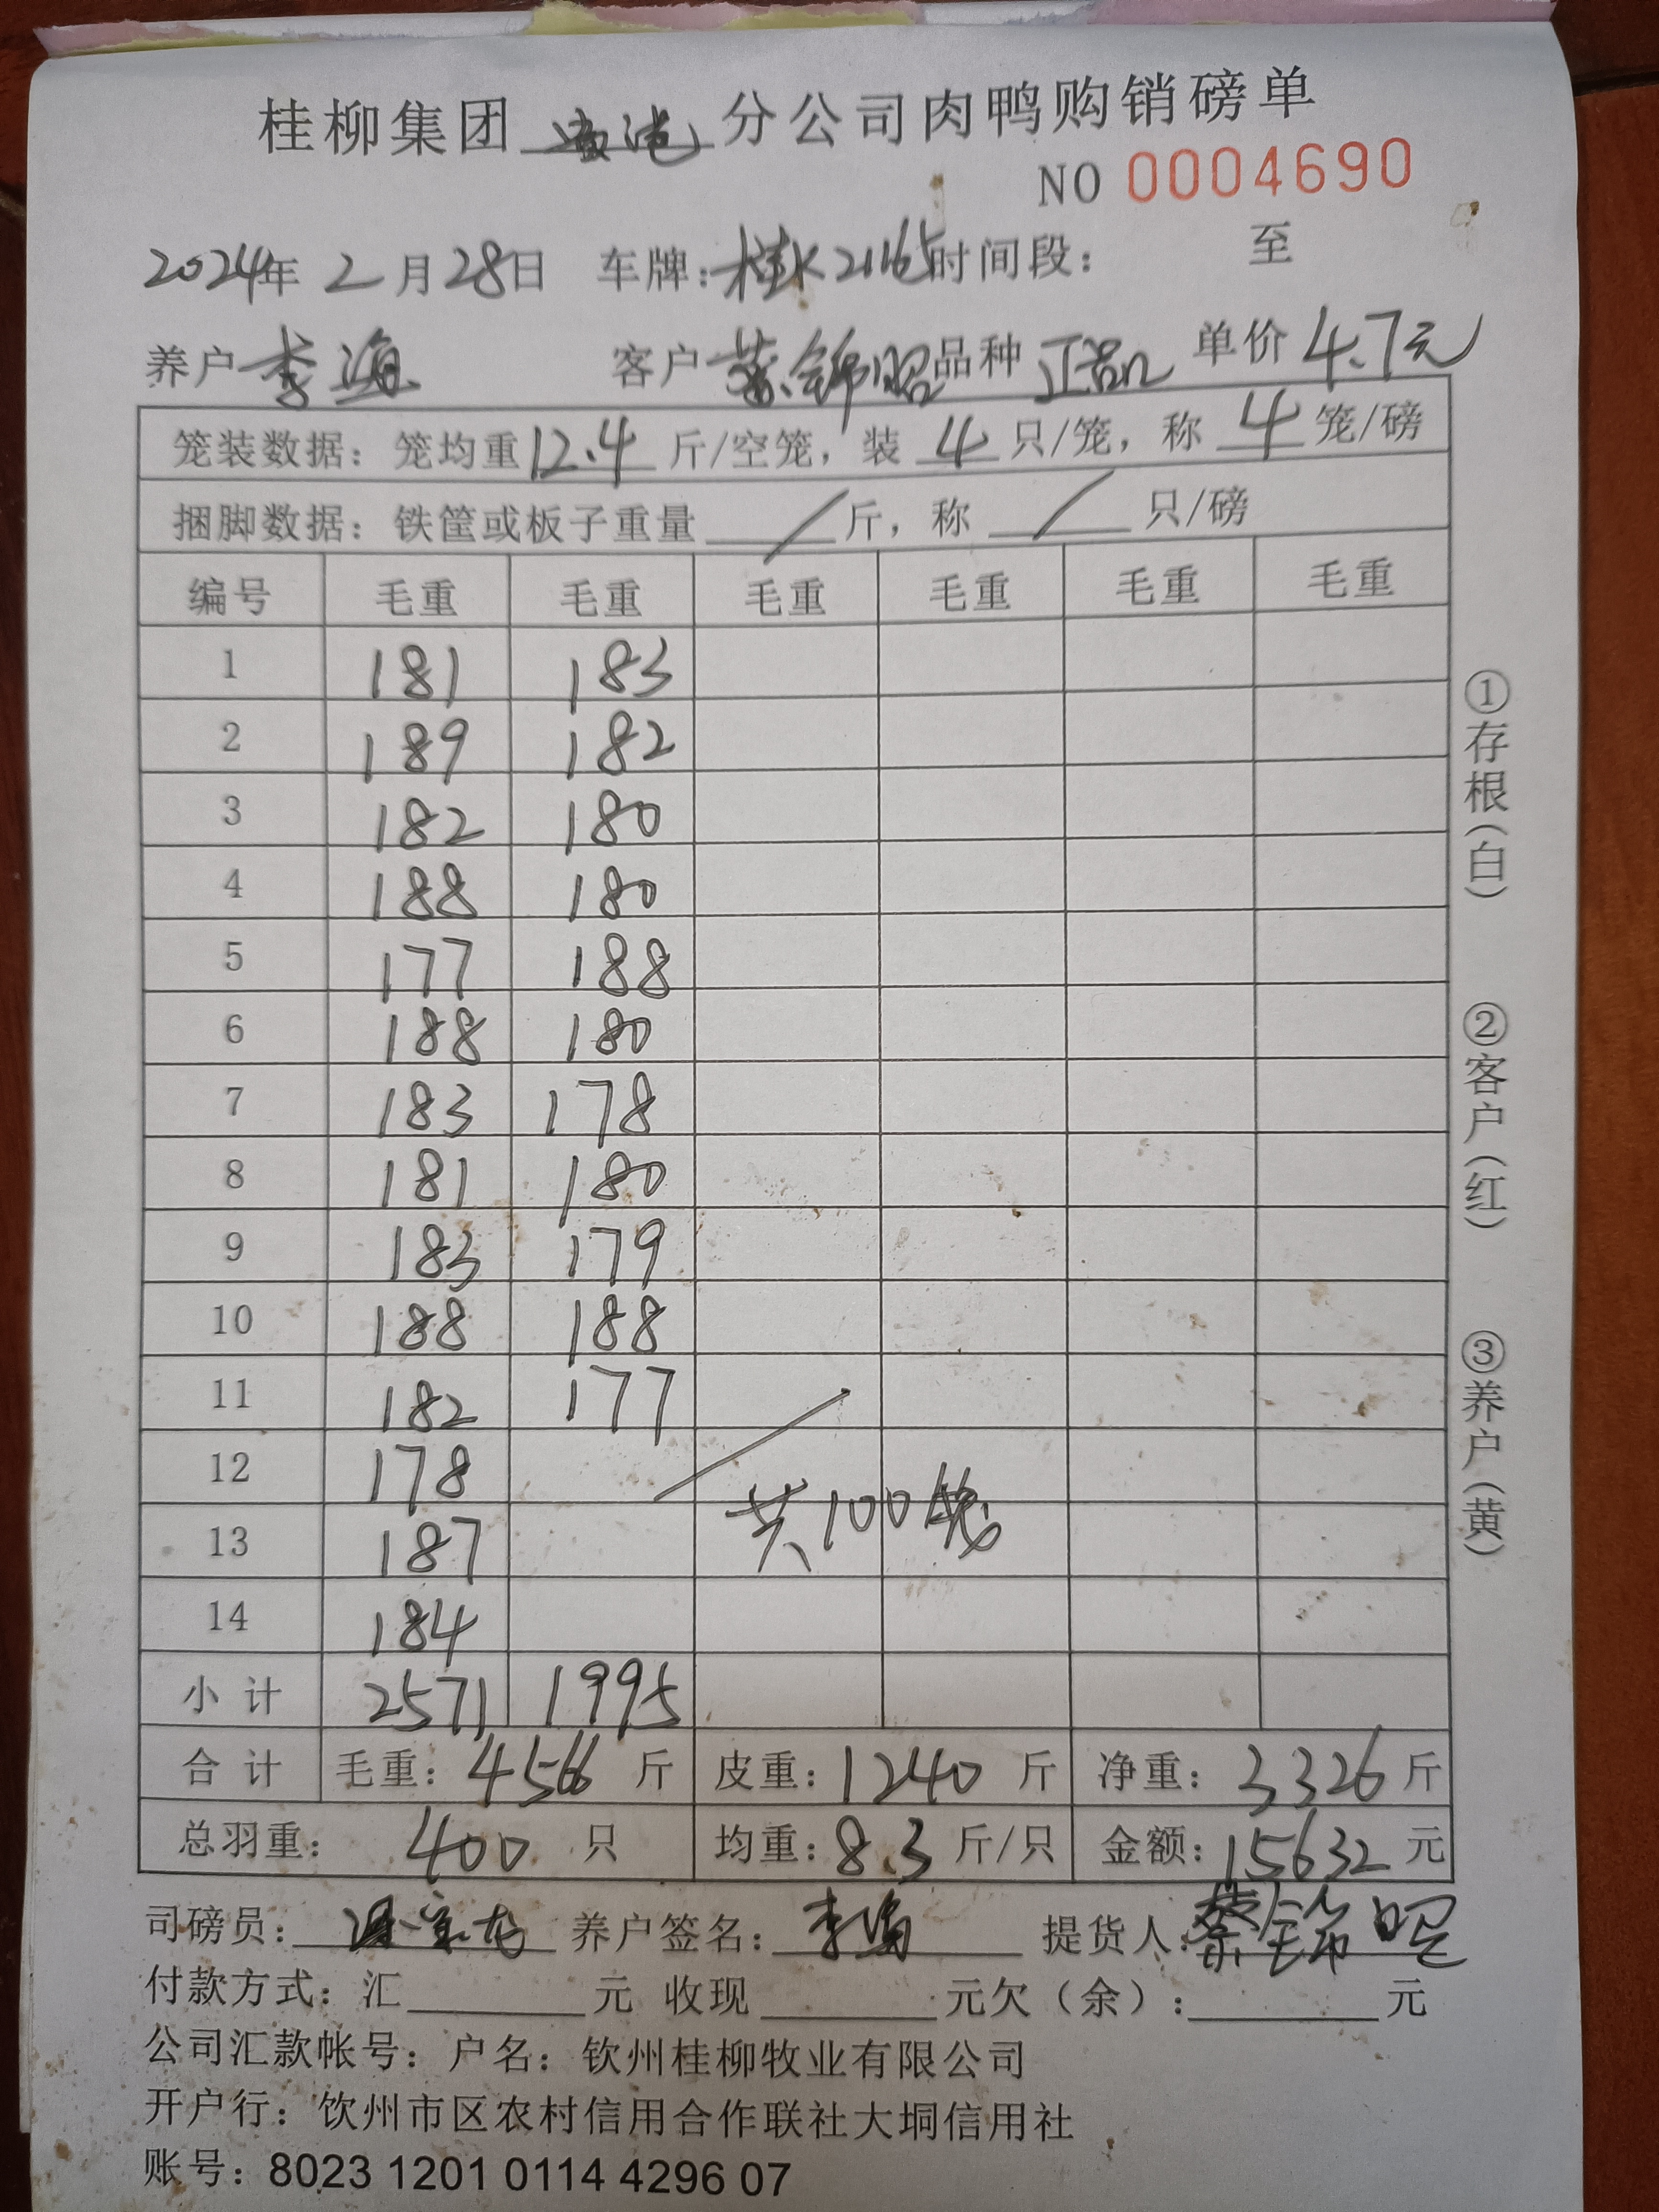 桂柳集团 贵港 分公司肉鸭购销磅单
NO 0004690
2024年 2 月 28日 车牌：桂K21165 时间段： 至
养户 李海 客户 蔡锦昭 品种 正品 单价 4.7元
笼装数据：笼均重 12.4 斤/空笼，装 4 只/笼，称 4 笼/磅
捆脚数据：铁筐或板子重量 / 斤，称 / 只/磅
编号 毛重 毛重 毛重 毛重 毛重 毛重
1 181 183
2 189 182
3 182 180
4 188 180
5 177 188
6 188 180
7 183 178
8 181 180
9 183 179
10 188 188
11 182 177
12 178
13 187 共100笼
14 184
小 计 2571 1995
合 计 毛重：4566 斤 皮重：1240 斤 净重：3326 斤
总羽重： 400 只 均重：8.3 斤/只 金额：15632 元
司磅员： 养户签名：李海 提货人：蔡锦昭
付款方式：汇 元 收现 元欠（余）： 元
公司汇款帐号：户名：钦州桂柳牧业有限公司
开户行：饮州市区农村信用合作联社大垌信用社
账号：8023 1201 0114 4296 07
①存根（白） ②客户（红） ③养户（黄）